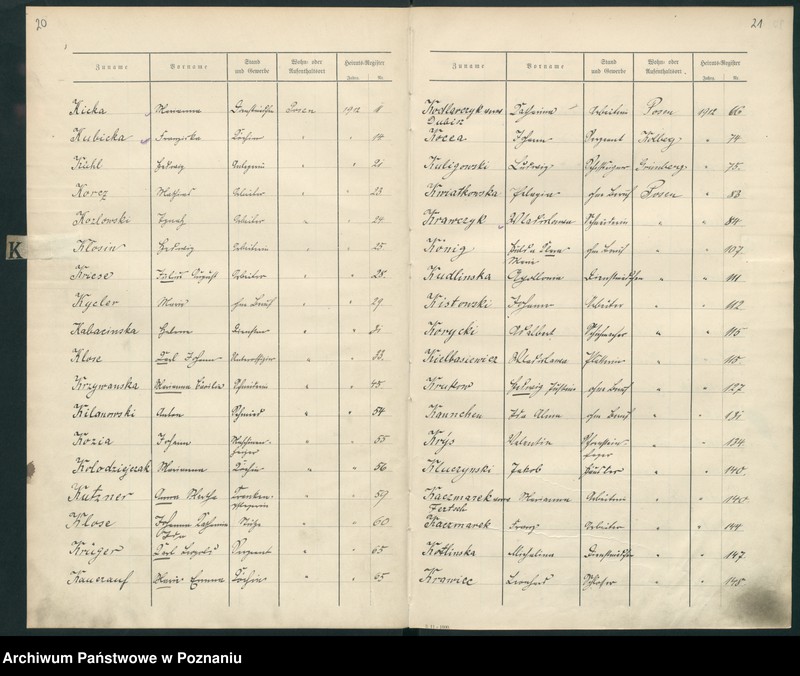 20
Zuname Vorname Stand und Gewerbe Wohn- oder Aufenthaltsort Heirats-Register
Jahre. Nr.
Kicka Marianna Posen 1912 11
Kubicka Franziska " " 14
Kühl Hedwig " " 21
Korcz Mathias Arbeiter " " 23
Kozlowski Ignatz Arbeiter " " 24
Klosin Hedwig Arbeiterin " " 25
Kriese Julius August Arbeiter " " 28
Kycler Maria ohne Beruf " " 29
Kabacinska Helene " " 31
Klose Karl Johann Unteroffizier " " 33
Krzywanska Marianna Schneiderin " " 45
Kilanowski Anton Schmied " " 54
Kozia Johann Maschinen- " " 55
heizer
Kolodziejczak Marianna Köchin " " 56
Kutzner Anna Martha Kranken- " " 59
pflegerin
Klose Johanna Stütze " " 60
Krüger Karl Sergeant " " 65
Kauerauf Marie Emma Köchin " " 65
K
21
Zuname Vorname Stand und Gewerbe Wohn- oder Aufenthaltsort Heirats-Register
Jahre. Nr.
Kodlarczyk Katharina Arbeiterin Posen 1912 66
Kozca Johann Sergeant Kolberg " 74
Kuligowski Ludwig Grünberg " 75
Kwiatkowska Pelagia ohne Beruf Posen " 83
Krawczyk Wladislawa Schneiderin " " 84
König ohne Beruf " " 107
Kudlinska Apollonia " " 111
Kistowski Johann Arbeiter " " 112
Korycki Adalbert Schuhmacher " " 115
Kielbasiewicz Wladislawa " " 115
Hedwig ohne Beruf " " 127
Kannchen Ida Alma ohne Beruf " " 131
Krýs Valentin Schornstein- " " 134
feger
Kluczynski Jakob Häusler " " 140
Kaczmarek Marianna Arbeiterin " " 140
Kaczmarek Franz Arbeiter " " 144
Kotlinska Michalina " " 147
Krawiec Leonhard Schlosser " " 148
Archiwum Państwowe w Poznaniu